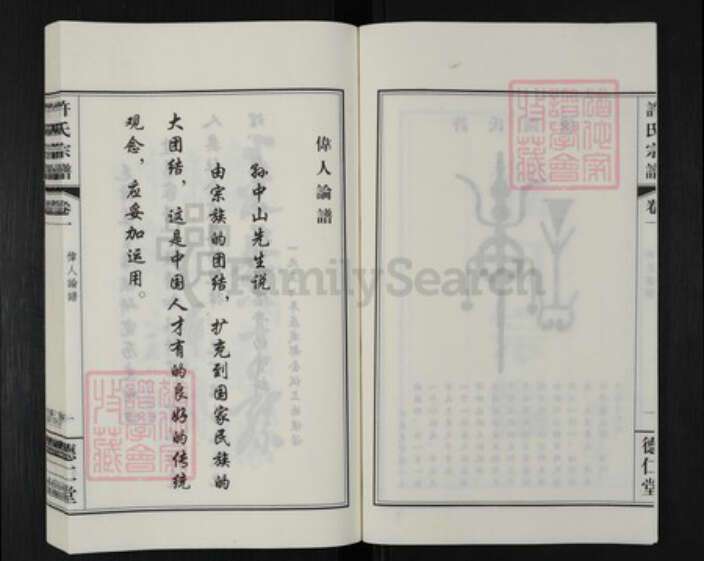 許氏宗譜
卷一
德仁堂
偉人論譜
孙中山先生说
由宗族的团结，扩充到国家民族的
大团结，这是中国人才有的良好的传统
观念，应妥加运用。
許氏宗譜
卷一
偉人論譜
一
德仁堂
FamilySearch